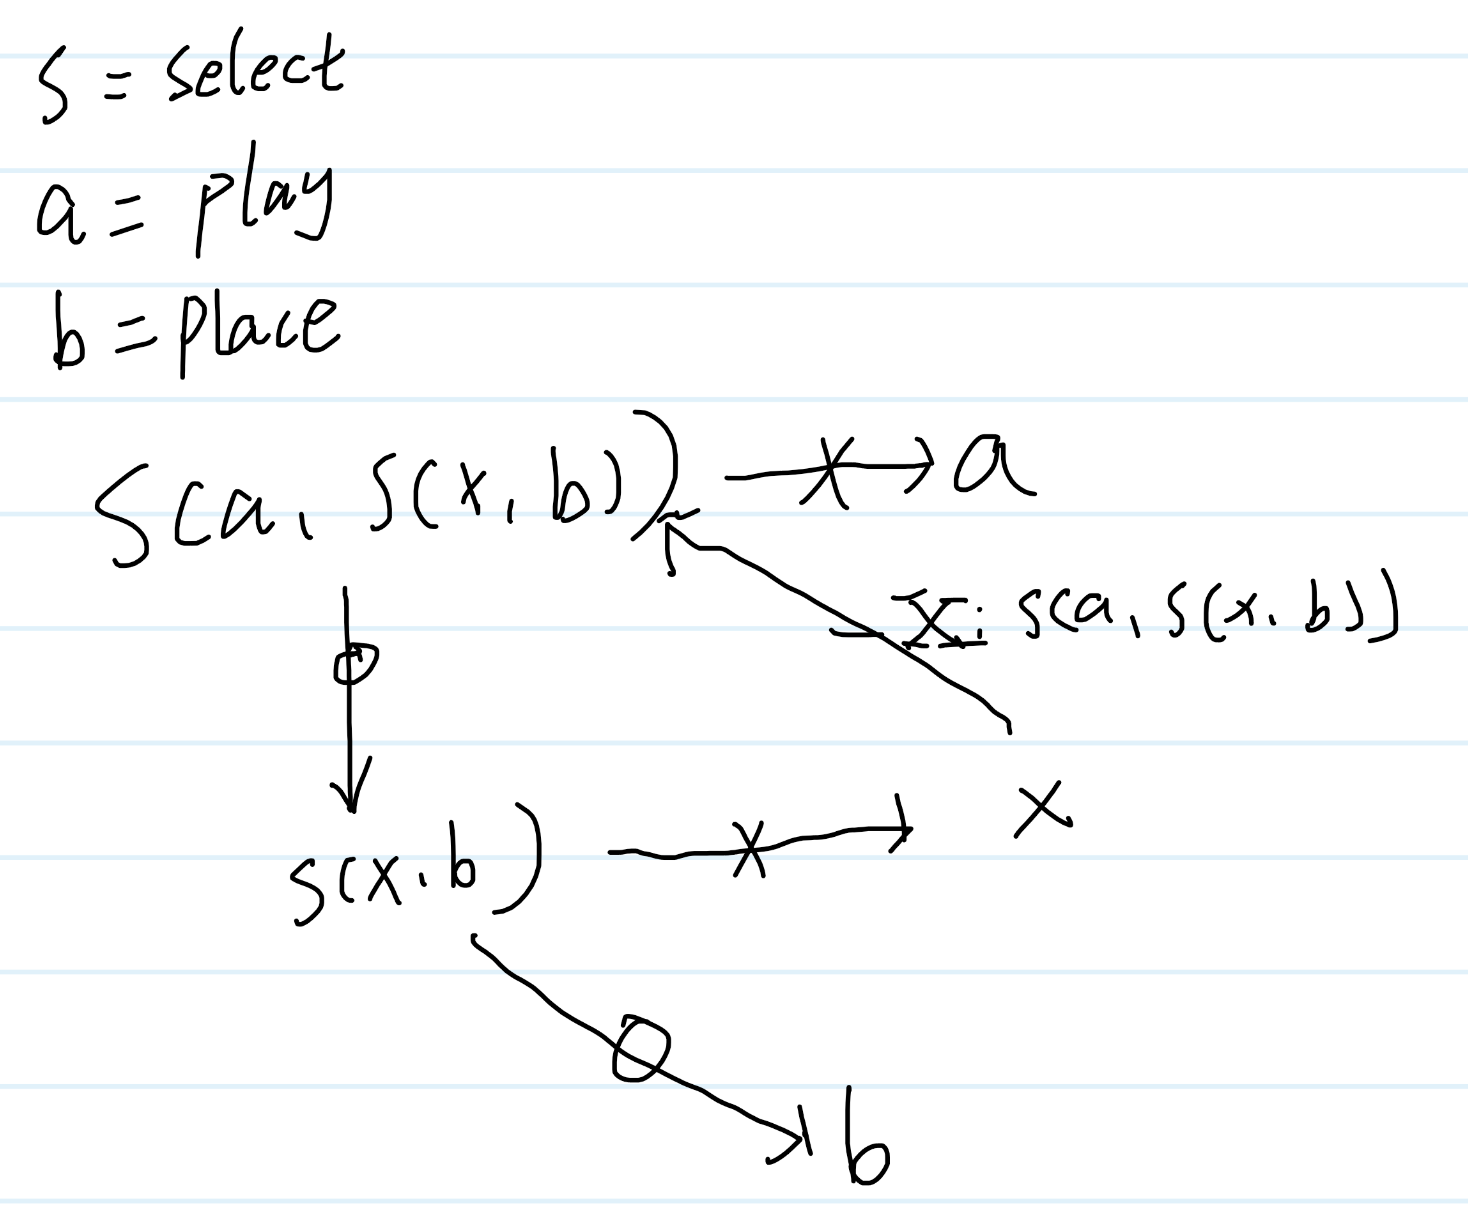 s = select
a = play
b = place
s(a, s(x, b)) → a
x: s(a, s(x, b))
s(x, b) → x
b